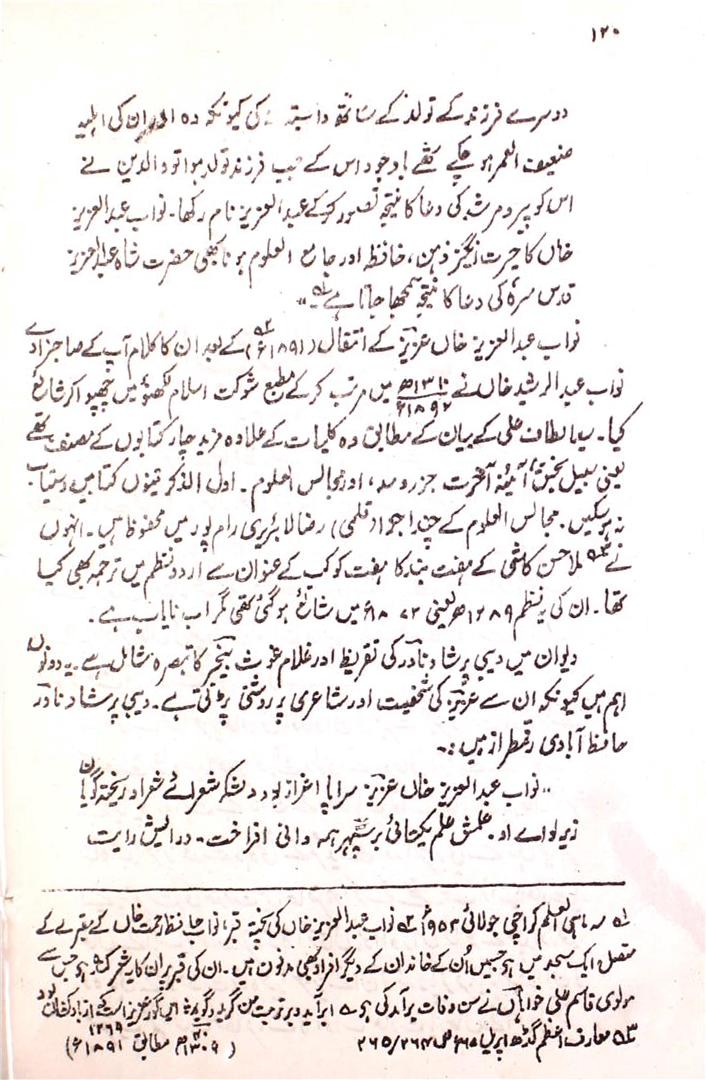 ۱۲۰
دوسرے فرزند کے تولد کے ساتھ وابستہ کی کیونکہ وہ اور ان کی اہلیہ
ضعیف العمر ہو چکے تھے باوجود اس کے جب فرزند تولد ہوا تو والدین نے
اس کو پیر و مرشد کی دعا کا نتیجہ تصور کر کے عبدالعزیز نام رکھا۔ نواب عبدالعزیز
خاں کا حیرت انگیز ذہن، حافظ اور جامع العلوم ہونا بھی حضرت شاہ عبدالعزیز
قدس سرہٗ کی دعا کا نتیجہ سمجھا جاتا ہے ۵۱؎"
نواب عبدالعزیز خاں عزیزؔ کے انتقال (۱۸۹۱ء) ۵۲؎ کے بعد ان کا کلام آپ کے صاحبزادے
نواب عبدالرشید خاں نے ۱۳۱۰ھ ۱۸۹۲ء میں مرتب کر کے مطبع شوکت اسلام لکھنؤ میں چھپوا کر شائع
کیا۔ سید الطاف علی کے بیان کے مطابق وہ کلیات کے علاوہ مزید چار کتابوں کے مصنف تھے
یعنی سبیل بخشش، آئینۂ آخرت، جزر و مد، اور مجالس العلوم۔ اول الذکر تینوں کتابیں دستیاب
نہ ہو سکیں۔ مجالس العلوم کے چند اجزا (قلمی) رضا لائبریری رام پور میں محفوظ ہیں۔ انہوں
نے ۵۳؎ ملا حسن کاشی کے ہفت بند کا ہفت کوکب کے عنوان سے اردو نظم میں ترجمہ بھی کیا
تھا۔ ان کی یہ نظم ۱۲۸۹ھ یعنی ۱۸۷۲ء میں شائع ہو گئی تھی مگر اب نایاب ہے۔
دیوان میں دیبی پرشاد نادرؔ کی تقریظ اور غلام غوث بیخبرؔ کا تبصرہ شامل ہے۔ یہ دونوں
اہم ہیں کیونکہ ان سے عزیزؔ کی شخصیت اور شاعری پر روشنی پڑتی ہے۔ دیبی پرشاد نادرؔ
حافظ آبادی رقمطراز ہیں :۔
"نواب عبدالعزیز خاں عزیزؔ سراپا اعزاز بود و لشکر شعرائے شعرا و ریختہ گویان
زیر لوائے او۔ علمش علم یکتائی بر سپہر ہمہ دانی افراخت۔ درایتش رایت
۵۱؎ سہ ماہی العلم کراچی جولائی ۱۹۵۳ء ۵۲؎ نواب عبدالعزیز خاں کی پختہ قبر، نواب حافظ رحمت خاں کے مقبرے کے
متصل ایک مسجد میں ہے جس میں اُن کے خاندان کے دیگر افراد بھی مدفون ہیں۔ ان کی قبر پر ان کا یہ شعر کندہ ہے جس سے
مولوی قاسم علی خواہاںؔ نے سن وفات برآمد کی ہے ؎ برآید و بر تربت من گرید و گوید
(۱۳۰۹ھ مطابق ۱۸۹۱ء)
۵۳؎ معارف اعظم گڈھ اپریل ۶۵ء ص ۲۶۴/۲۶۵